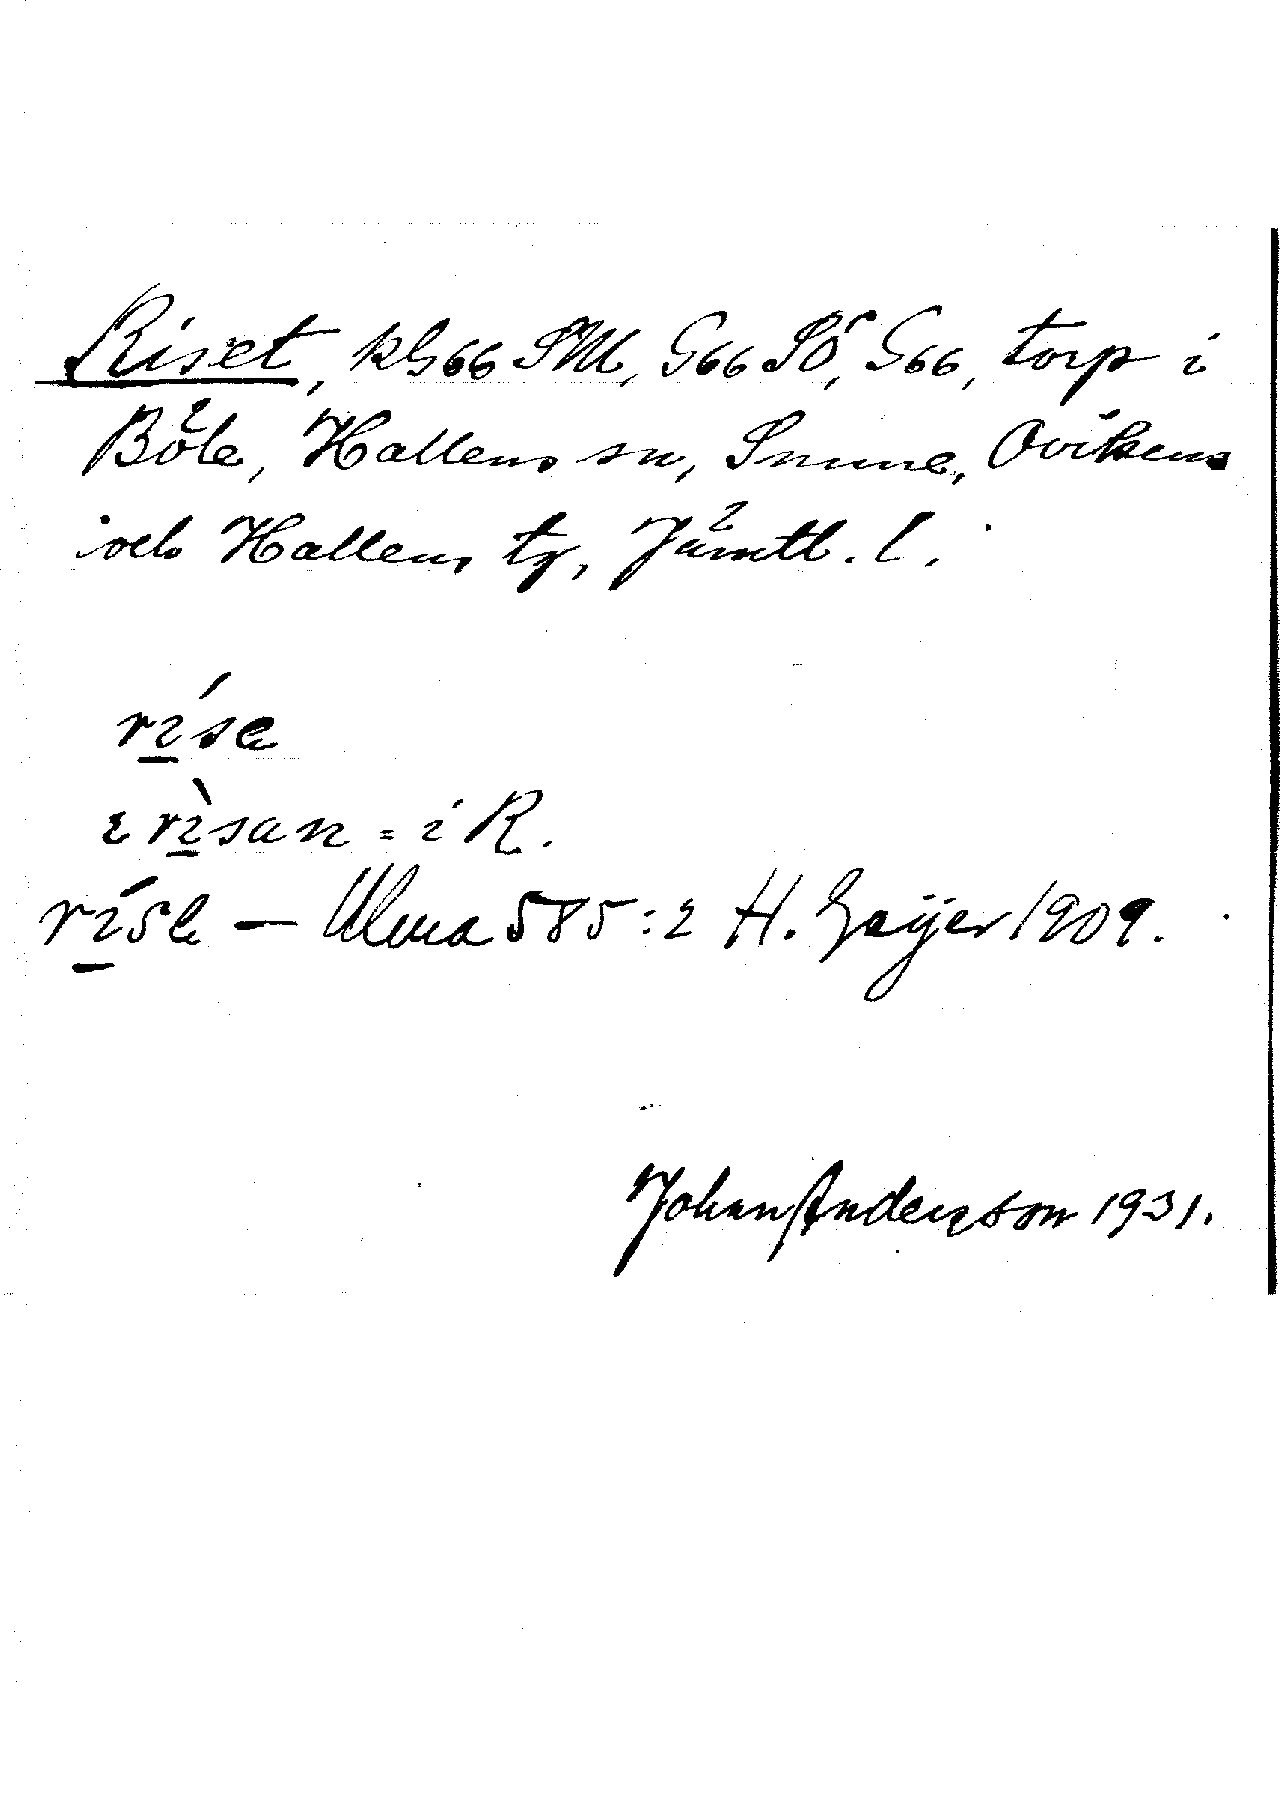 Riset, kG66 SM, G66 SÖ, G66, torp i
Böle, Hallens sn, Sunne, Ovikens
och Hallens tg, Jämtl. l.
ríse
ɩ rìsan = i R.
ríse — Ulma 585:2 H. Geijer 1909.
Johan Anderson 1931.